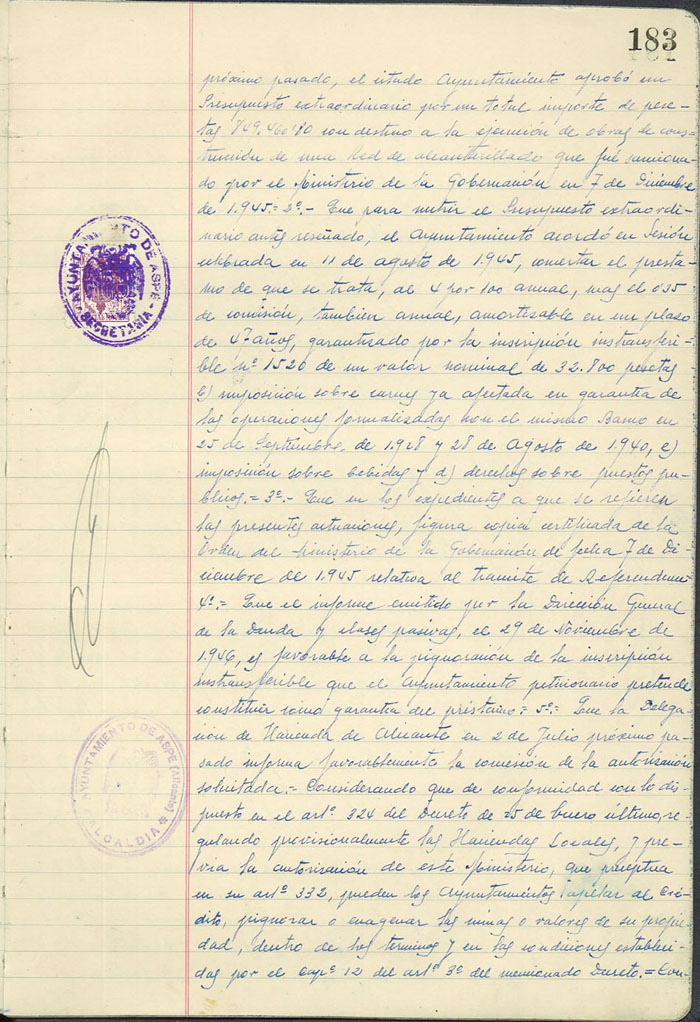 183
próximo pasado, el citado Ayuntamiento aprobó un
Presupuesto extraordinario por un total importe de pese-
tas 849.460'80 con destino a la ejecución de obras de cons-
trucción de una Red de alcantarillado que fué sanciona-
do por el Ministerio de la Gobernación en 7 de Diciembre
de 1.945.= 2º.- Que para nutrir el Presupuesto extraordi-
nario antes reseñado, el Ayuntamiento acordó en Sesión
celebrada en 11 de agosto de 1.945, concertar el presta-
mo de que se trata, al 4 por 100 anual, mas el 0'35
de comisión, tambien anual, amortizable en un plazo
de años, garantizado por la inscripción instransferi-
ble nº 1520 de un valor nominal de 32.800 pesetas
b) imposición sobre carnes ya afectada en garantia de
las operaciones formalizadas con el mismo Banco en
25 de Septiembre, de 1.928 y 28 de Agosto de 1.940, c)
imposición sobre bebidas y d) derechos sobre puestos pu-
blicos.= 3º.- Que en los expedientes a que se refieren
las presentes actuaciones, figura copia certificada de la
Orden del Ministerio de la Gobernación de fecha 7 de Di-
ciembre de 1.945 relativa al tramite de Referendum
4º.= Que el informe emitido por la Dirección General
de la Deuda y clases pasivas, el 29 de Noviembre de
1.946, es favorable a la pignoración de la inscripción
instransferible que el Ayuntamiento peticionario pretende
constituir como garantia del préstamo.= 5º.- Que la Delega-
ción de Hacienda de Alicante en 2 de Julio próximo pa-
sado informa favorablemente la concesión de la autorización
solicitada.= Considerando que de conformidad con lo dis-
puesto en el artº 324 del Decreto de 25 de Enero ultimo, re-
gulando provisionalmente las Haciendas Locales, y pre-
via la autorización de este Ministerio, que preceptua
en su artº 332, pueden los Ayuntamientos apelar al Cré-
dito, pignorar o enagenar las minas o valores de su propie-
dad, dentro de los terminos y en las condiciones estableci-
das por el Capº 12 del artº 3º del mencionado Decreto.= Con-
AYUNTAMIENTO DE ASPE
SECRETARIA
AYUNTAMIENTO DE ASPE (Alicante)
ALCALDIA